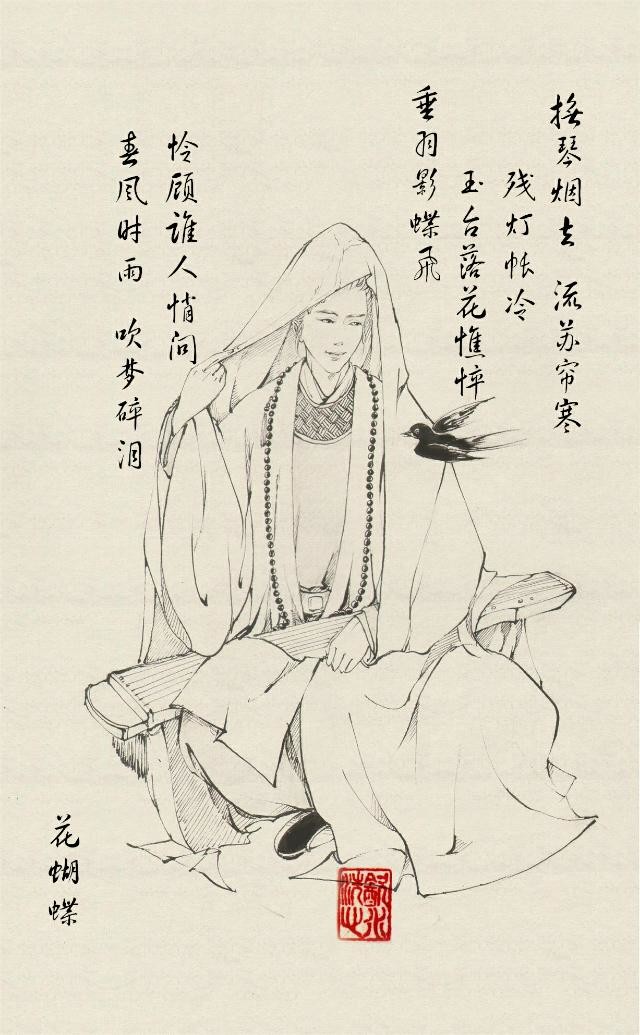 抚琴烟去 流苏帘寒
残灯帐冷
玉台落花憔悴
垂羽影蝶飛
怜顾谁人悄问
春风时雨 吹梦碎泪
花蝴蝶